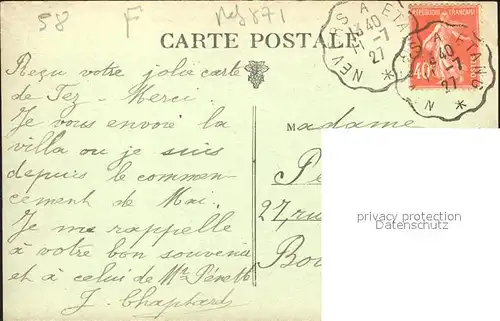 58
F
Nef 871
CARTE POSTALE
NEVERS A ETANG
40
-7
27
REPUBLIQUE FRANÇAISE
40c
POSTES
Reçu votre jolie carte
de Fez - Merci.
Je vous envoie la
villa ou je suis
depuis le commen-
cement de Mai.
Je me rappelle
à votre bon souvenir
et à celui de Mr
J. Chaptard
Madame
27, rue
privacy protection
Datenschutz